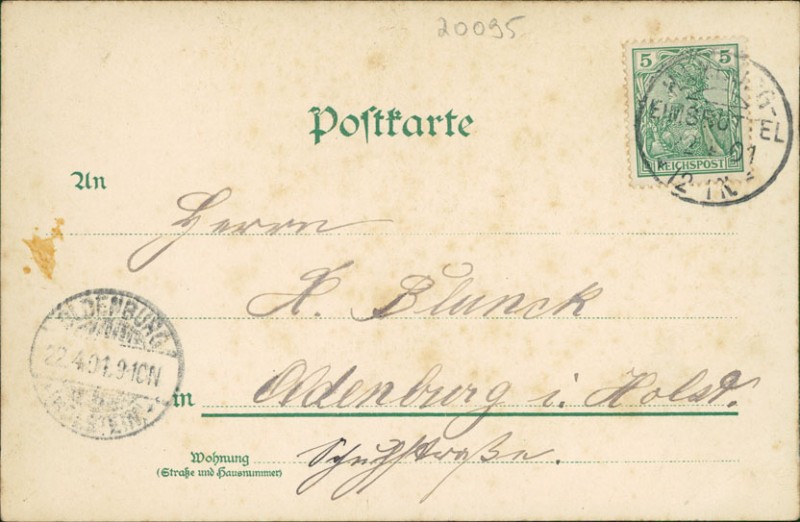 20095
5 5
REICHSPOST
EIMSBÜ
EL
01
12-1N
Postkarte
An
Herrn
H. Blunck
OLDENBURG
22.4.01.9-10N
in Oldenburg i. Holst.
Wohnung
(Straße und Hausnummer)